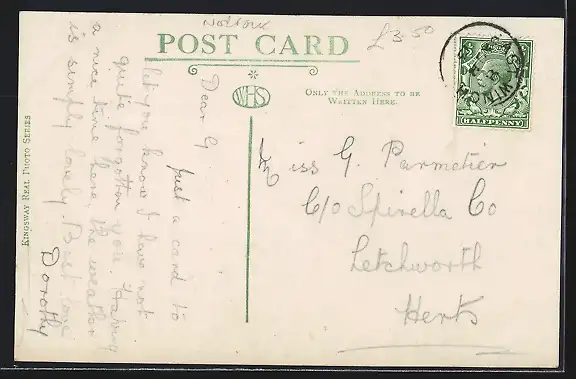 Norfolk
£3.50
POST CARD
WHS
ONLY THE ADDRESS TO BE
WRITTEN HERE.
HALFPENNY
KINGSWAY REAL PHOTO SERIES
Dear G
Just a card to
let you know I have not
quite forgotten you. Having
a nice time here, the weather
is simply lovely. Best love
Dorothy
Miss G. Parmetier
C/o Spirella Co
Letchworth
Herts